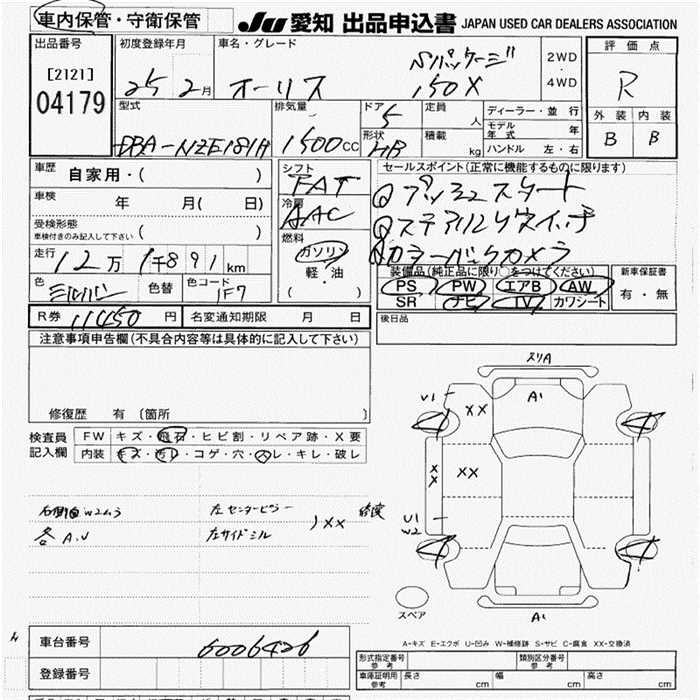 車内保管・守衛保管
JU 愛知 出品申込書 JAPAN USED CAR DEALERS ASSOCIATION
出品番号
[2121]
04179
初度登録年月
25 2月
車名・グレード
オーリス
Sパッケージ
150X
2WD
・
4WD
評価点
R
外装 内装
B B
型式
DBA-NZE181H
排気量
1500cc
ドア
5
形状
HB
定員
人
積載
kg
ディーラー・並行
モデル年式 年
ハンドル 左・右
車歴
自家用・( )
車検
年 月( 日)
受検形態
車検付きのみ記入して下さい ( )
走行
12万1千891km
色
シルバー
色替
色コード
1F7
シフト
FAT
冷房
AAC
燃料
ガソリン
軽・油
( )
セールスポイント(正常に機能するものに限ります)
プッシュスタート
ステアリングスイッチ
カラーバックカメラ
装備品(純正品に限り○をつけてください)
PS PW エアB AW
SR ナビ TV カワシート
新車保証書
有・無
R券 11450円
名変通知期限 月 日
後日品
注意事項申告欄(不具合内容等は具体的に記入して下さい)
修復歴 有 (箇所 )
検査員
記入欄
FW キズ・飛石・ヒビ割・リペア跡・X要
内装 キズ・汚レ・コゲ・穴・スレ・キレ・破レ
右側面 W2ムラ
各A.U
左センターピラー
左サイドシル
)XX
修復
スリA
A1
U1
XX
4
4
XX
XX
U1
W2
4
4
スペア
A1
A-キズ E-エクボ U-凹み W-補修跡 S-サビ C-腐食 XX-交換済
車台番号
6006426
登録番号
形式指定番号
参考
類別区分番号
参考
車庫証明用
参考
長さ cm 幅 cm 高さ cm